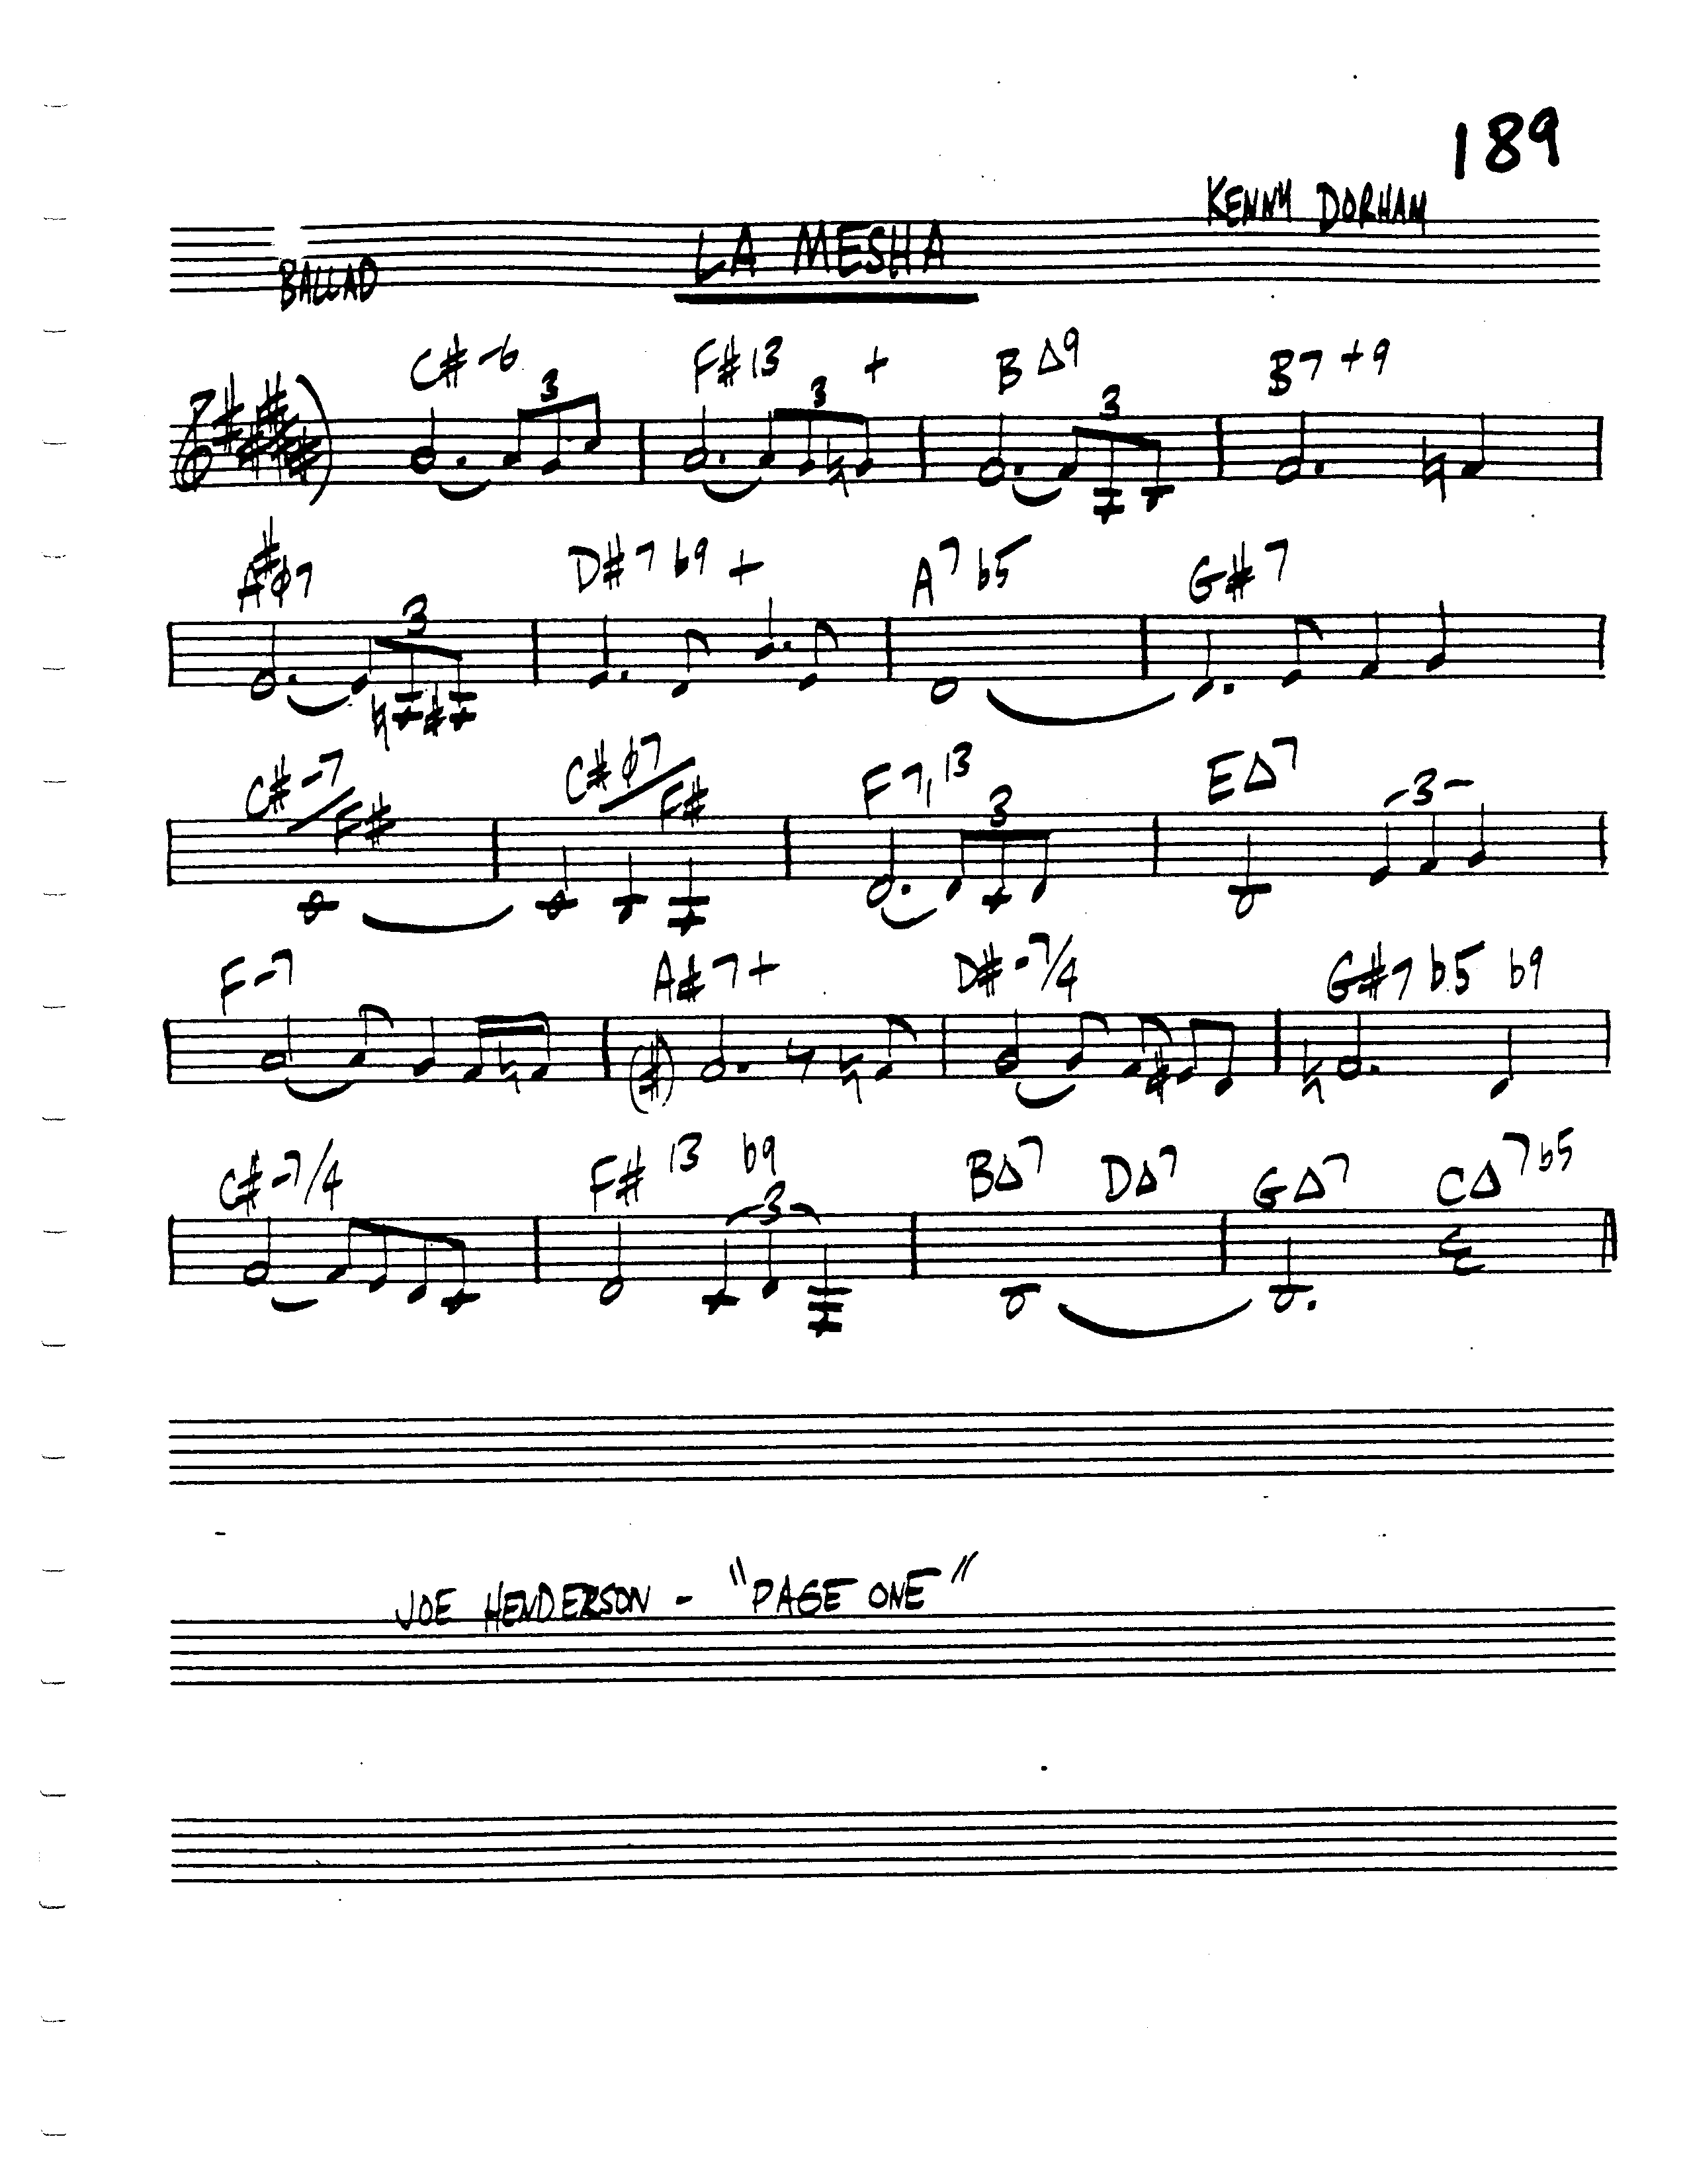 189
KENNY DORHAM
LA MESHA
BALLAD
C#-6 F#13 + B△9 B7+9
3 3 3
A#ø7 D#7b9+ A7b5 G#7
3
C#-7/F# C#ø7/F# F7,13 E△7
3 -3-
F-7 A#7+ D#-7/4 G#7b5 b9
C#-7/4 F#13 b9 B△7 D△7 G△7 C△7b5
3
JOE HENDERSON - "PAGE ONE"